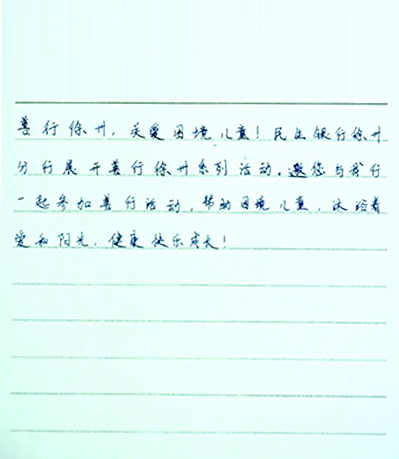 善行徐州，关爱困境儿童！民生银行徐州
分行展开善行徐州系列活动。邀您与我行
一起参加善行活动，帮助困境儿童，沐浴着
爱和阳光，健康快乐成长！